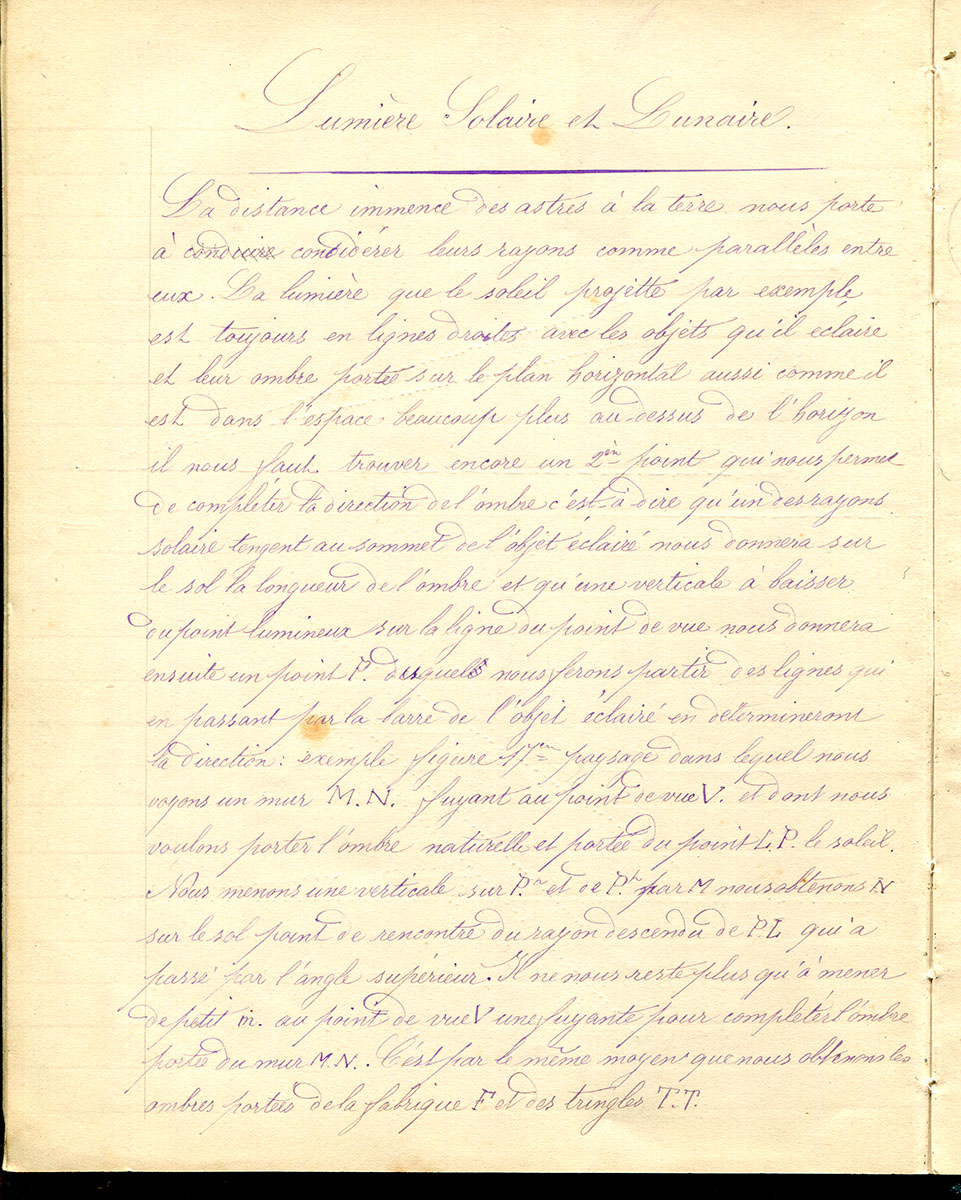 Lumière Solaire et Lunaire.
La distance immence des astres à la terre nous porte
à conduire condidérer leurs rayons comme parallèles entre
eux. La lumière que le soleil projette par exemple,
est toujours en lignes droites avec les objets qu'il eclaire
et leur ombre portée sur le plan horizontal aussi comme il
est dans l'espace beaucoup plus au dessus de l'horizon
il nous faut trouver encore un 2èm point qui nous permet
de compléter la direction de l'ombre c'est-à-dire qu'un des rayons
solaire tengent au sommet de l'objet éclairé nous donnera sur
le sol la longueur de l'ombre et qu'une verticale à baisser
du point lumineux sur la ligne du point de vue nous donnera
ensuite un point P. duquel nous ferons partir des lignes qui
en passant par la barre de l'objet éclairé en détermineront
la direction : exemple figure 17em paysage dans lequel nous
voyons un mur M.N. fuyant au point de vue V. et dont nous
voulons porter l'ombre naturelle et portée du point L.P. le soleil.
Nous menons une verticale sur P. et de P. par M nous obtenons N
sur le sol point de rencontre du rayon descendu de P.L qui a
passé par l'angle supérieur. Il ne nous reste plus qu'à mener
de petit m. au point de vue V une fuyante pour compléter l'ombre
portée du mur M.N.. C'est par le même moyen que nous obtenons les
ombres portées de la fabrique F et des tringles T.T.